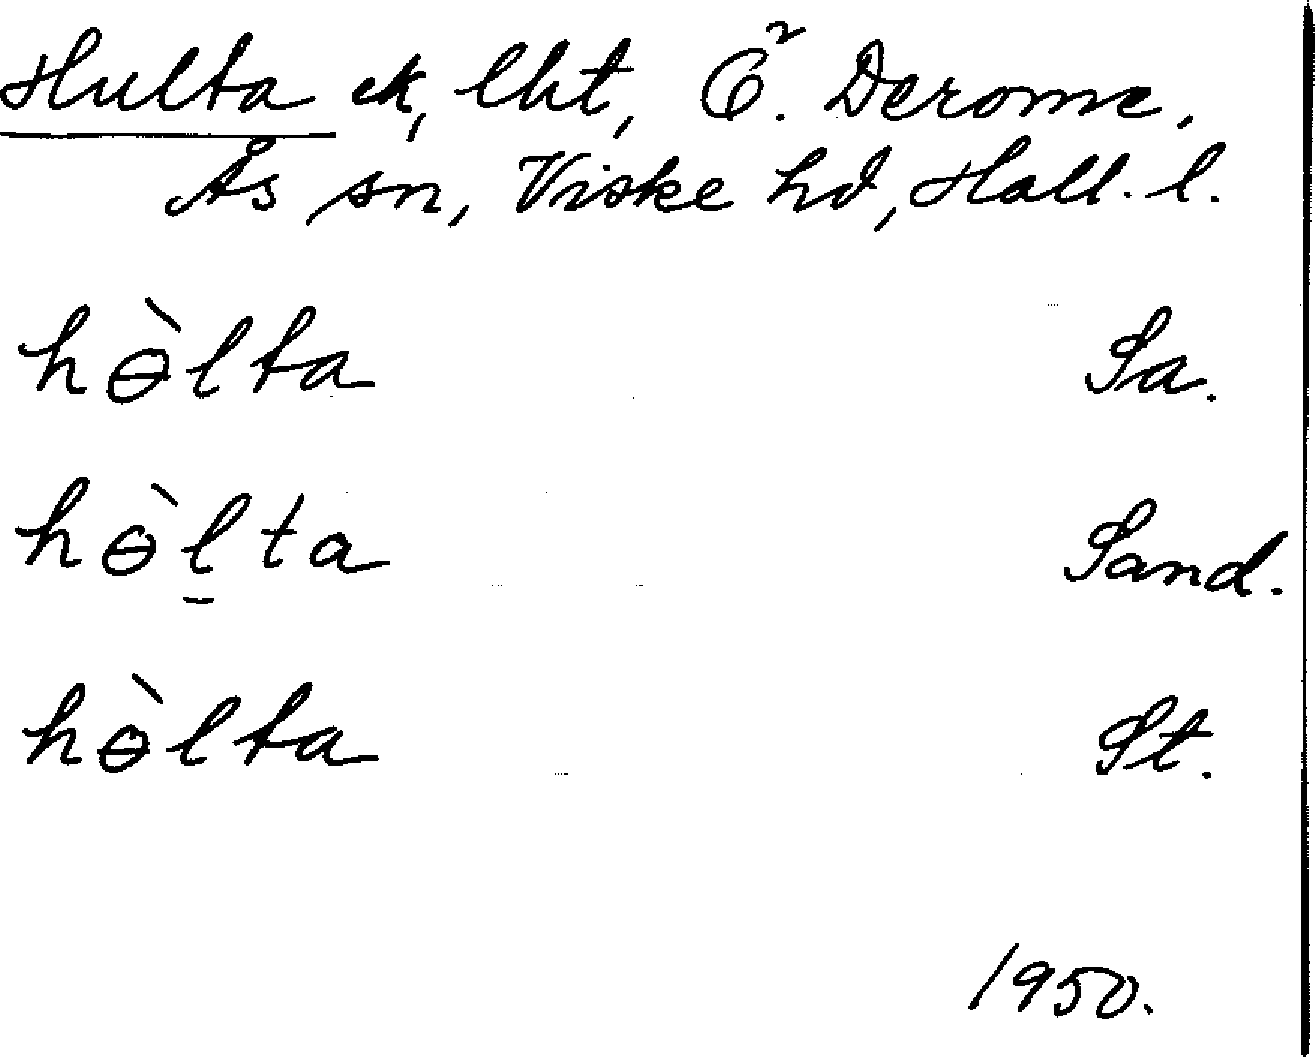 Hulta ek, lht, Ö. Derome,
Ås sn, Viske hd, Hall. l.
hɵ̀lta Sa.
hɵ̀l̠ta Sand.
hɵ̀lta St.
1950.